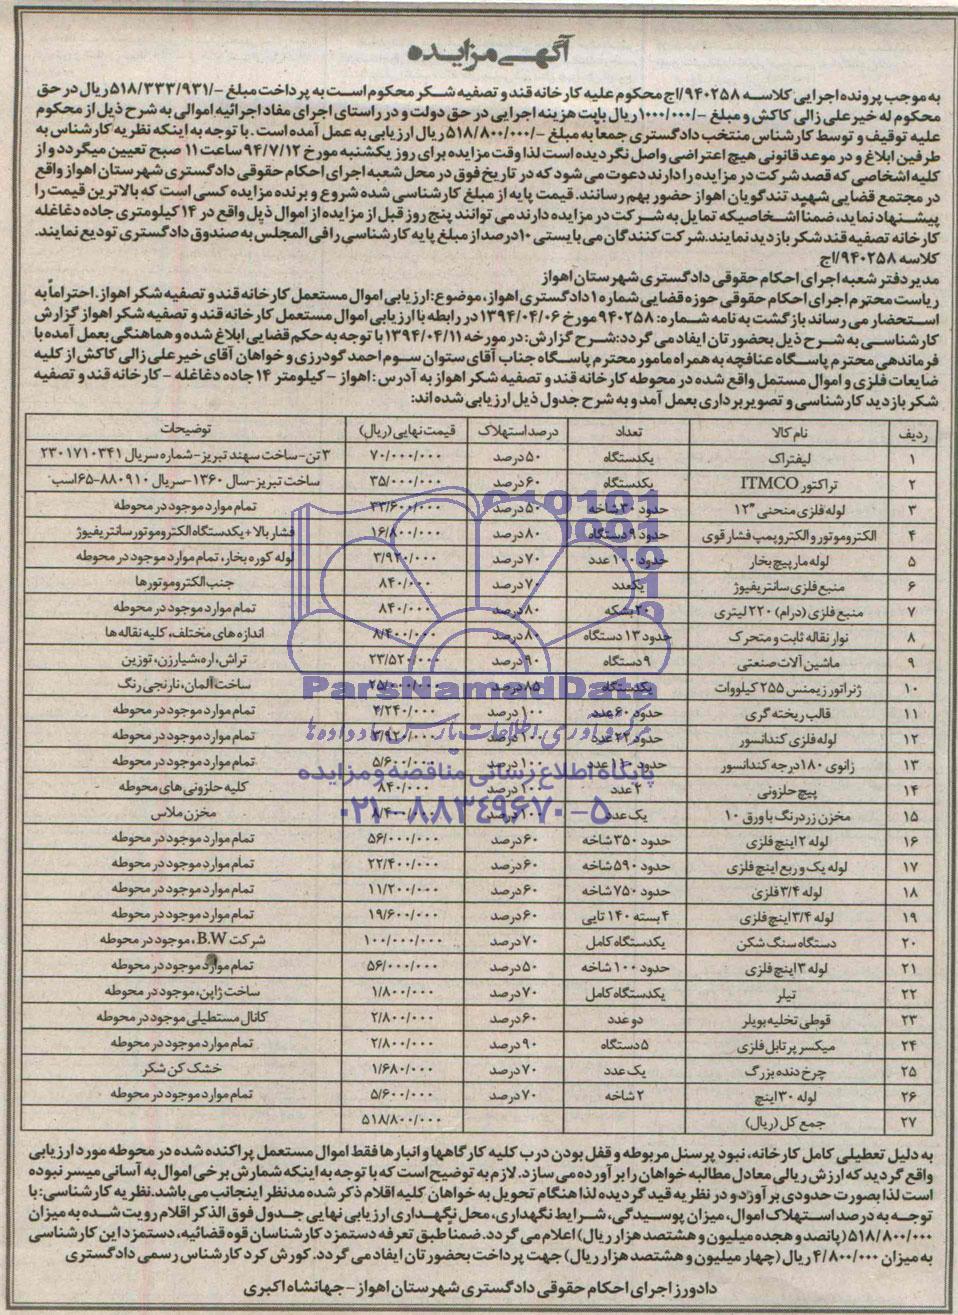 آگهی مزایده
به موجب پرونده اجرایی کلاسه ۹۴۰۲۵۸/اج محکوم علیه کارخانه قند و تصفیه شکر محکوم است به پرداخت مبلغ -/۵۱۸/۳۳۳/۹۳۱ ریال در حق
محکوم له خیر علی زالی کاکش و مبلغ -/۱۰۰۰/۰۰۰ ریال بابت هزینه اجرایی در حق دولت و در راستای اجرای مفاد اجرائیه اموالی به شرح ذیل از محکوم
علیه توقیف و توسط کارشناس منتخب دادگستری جمعاً به مبلغ -/۵۱۸/۸۰۰/۰۰۰ ریال ارزیابی به عمل آمده است. با توجه به اینکه نظریه کارشناس به
طرفین ابلاغ و در موعد قانونی هیچ اعتراضی واصل نگردیده است لذا وقت مزایده برای روز یکشنبه مورخ ۹۴/۷/۱۲ ساعت ۱۱ صبح تعیین میگردد و از
کلیه اشخاصی که قصد شرکت در مزایده را دارند دعوت می شود که در تاریخ فوق در محل شعبه اجرای احکام حقوقی دادگستری شهرستان اهواز واقع
در مجتمع قضایی شهید تندگویان اهواز حضور بهم رسانند. قیمت پایه از مبلغ کارشناسی شده شروع و برنده مزایده کسی است که بالاترین قیمت را
پیشنهاد نماید، ضمناً اشخاصیکه تمایل به شرکت در مزایده دارند می توانند پنج روز قبل از مزایده از اموال ذیل واقع در ۱۴ کیلومتری جاده دغاغله
کارخانه تصفیه قند شکر بازدید نمایند. شرکت کنندگان می بایستی ۱۰ درصد از مبلغ پایه کارشناسی را فی المجلس به صندوق دادگستری تودیع نمایند.
کلاسه ۹۴۰۲۵۸/اج
مدیر دفتر شعبه اجرای احکام حقوقی دادگستری شهرستان اهواز
ریاست محترم اجرای احکام حقوقی حوزه قضایی شماره ۱ دادگستری اهواز، موضوع: ارزیابی اموال مستعمل کارخانه قند و تصفیه شکر اهواز. احتراماً به
استحضار می رساند بازگشت به نامه شماره: ۹۴۰۲۵۸ مورخ ۱۳۹۴/۰۴/۰۶ در رابطه با ارزیابی اموال مستعمل کارخانه قند و تصفیه شکر اهواز گزارش
کارشناسی به شرح ذیل بحضورتان ایفاد می گردد: شرح گزارش: در مورخه ۱۳۹۴/۰۴/۱۱ با توجه به حکم قضایی ابلاغ شده و هماهنگی بعمل آمده با
فرماندهی محترم پاسگاه عنافچه به همراه مامور محترم پاسگاه جناب آقای ستوان سوم احمد گودرزی و خواهان آقای خیر علی زالی کاکش از کلیه
ضایعات فلزی و اموال مستمل واقع شده در محوطه کارخانه قند و تصفیه شکر اهواز به آدرس: اهواز - کیلومتر ۱۴ جاده دغاغله - کارخانه قند و تصفیه
شکر بازدید کارشناسی و تصویربرداری بعمل آمد و به شرح جدول ذیل ارزیابی شده اند:
ردیف نام کالا تعداد درصد استهلاک قیمت نهایی (ریال) توضیحات
۱ لیفتراک یکدستگاه ۵۰ درصد ۷۰/۰۰۰/۰۰۰ ۳ تن - ساخت سهند تبریز - شماره سریال ۲۳۰۱۷۱۰۳۴۱
۲ تراکتور ITMCO یکدستگاه ۶۰ درصد ۳۵/۰۰۰/۰۰۰ ساخت تبریز - سال ۱۳۶۰ - سریال ۸۸۰۹۱۰-۶۵ اسب
۳ لوله فلزی منحنی "۱۲ حدود ۳۰ شاخه ۵۰ درصد ۳۳/۶۰۰/۰۰۰ تمام موارد موجود در محوطه
۴ الکتروموتور و الکتروپمپ فشار قوی حدود ۹ دستگاه ۸۰ درصد ۱۶/۸۰۰/۰۰۰ فشار بالا + یکدستگاه الکتروموتور سانتریفیوژ
۵ لوله مارپیچ بخار حدود ۱۰۰ عدد ۷۰ درصد ۳/۹۲۰/۰۰۰ لوله کوره بخار، تمام موارد موجود در محوطه
۶ منبع فلزی سانتریفیوژ یکعدد ۷۰ درصد ۸۴۰/۰۰۰ جنب الکتروموتورها
۷ منبع فلزی (درام) ۲۲۰ لیتری ۲۰ بشکه ۸۰ درصد ۸۴۰/۰۰۰ تمام موارد موجود در محوطه
۸ نوار نقاله ثابت و متحرک حدود ۱۳ دستگاه ۸۰ درصد ۸/۴۰۰/۰۰۰ اندازه های مختلف، کلیه نقاله ها
۹ ماشین آلات صنعتی ۹ دستگاه ۹۰ درصد ۲۳/۵۲۰/۰۰۰ تراش، اره، شیارزن، توزین
۱۰ ژنراتور زیمنس ۲۵۵ کیلووات یکدستگاه ۸۵ درصد ۲۵/۰۰۰/۰۰۰ ساخت آلمان، نارنجی رنگ
۱۱ قالب ریخته گری حدود ۶۰ عدد ۱۰۰ درصد ۴/۲۴۰/۰۰۰ تمام موارد موجود در محوطه
۱۲ لوله فلزی کندانسور حدود ۲۲ عدد ۱۰۰ درصد ۳/۹۲۰/۰۰۰ تمام موارد موجود در محوطه
۱۳ زانوی ۱۸۰ درجه کندانسور حدود ۱۱۰ عدد ۱۰۰ درصد ۵/۶۰۰/۰۰۰ تمام موارد موجود در محوطه
۱۴ پیچ حلزونی ۲ عدد ۱۰۰ درصد ۸۴۰/۰۰۰ کلیه حلزونی های محوطه
۱۵ مخزن زرد رنگ با ورق ۱۰ یک عدد ۱۰۰ درصد ۸/۴۰۰/۰۰۰ مخزن ملاس
۱۶ لوله ۲ اینچ فلزی حدود ۳۵۰ شاخه ۶۰ درصد ۵۶/۰۰۰/۰۰۰ تمام موارد موجود در محوطه
۱۷ لوله یک و ربع اینچ فلزی حدود ۵۹۰ شاخه ۶۰ درصد ۲۲/۴۰۰/۰۰۰ تمام موارد موجود در محوطه
۱۸ لوله ۳/۴ فلزی حدود ۷۵۰ شاخه ۶۰ درصد ۱۱/۲۰۰/۰۰۰ تمام موارد موجود در محوطه
۱۹ لوله ۳/۴ اینچ فلزی ۴ بسته ۱۴۰ تایی ۶۰ درصد ۱۹/۶۰۰/۰۰۰ تمام موارد موجود در محوطه
۲۰ دستگاه سنگ شکن یکدستگاه کامل ۷۰ درصد ۱۰۰/۰۰۰/۰۰۰ شرکت B.W، موجود در محوطه
۲۱ لوله ۳ اینچ فلزی حدود ۱۰۰ شاخه ۵۰ درصد ۵۶/۰۰۰/۰۰۰ تمام موارد موجود در محوطه
۲۲ تیلر یکدستگاه کامل ۷۰ درصد ۱/۸۰۰/۰۰۰ ساخت ژاپن، موجود در محوطه
۲۳ قوطی تخلیه بویلر دو عدد ۶۰ درصد ۲/۸۰۰/۰۰۰ کانال مستطیلی موجود در محوطه
۲۴ میکسر پرتابل فلزی ۵ دستگاه ۹۰ درصد ۲/۸۰۰/۰۰۰ تمام موارد موجود در محوطه
۲۵ چرخ دنده بزرگ یک عدد ۷۰ درصد ۱/۶۸۰/۰۰۰ خشک کن شکر
۲۶ لوله ۳۰ اینچ ۲ شاخه ۷۰ درصد ۵/۶۰۰/۰۰۰ تمام موارد موجود در محوطه
۲۷ جمع کل (ریال) ۵۱۸/۸۰۰/۰۰۰
ParsNamadData
مرکز فرآوری اطلاعات پارس نماد داده ها
پایگاه اطلاع رسانی مناقصه و مزایده
۰۲۱-۸۸۳۴۹۶۷۰-۵
به دلیل تعطیلی کامل کارخانه، نبود پرسنل مربوطه و قفل بودن درب کلیه کارگاهها و انبارها فقط اموال مستعمل پراکنده شده در محوطه مورد ارزیابی
واقع گردید که ارزش ریالی معادل مطالبه خواهان را برآورده می سازد. لازم به توضیح است که با توجه به اینکه شمارش برخی اموال به آسانی میسر نبوده
است لذا بصورت حدودی برآورد و در نظریه قید گردیده لذا هنگام تحویل به خواهان کلیه اقلام ذکر شده مدنظر اینجانب می باشد. نظریه کارشناسی: با
توجه به درصد استهلاک اموال، میزان پوسیدگی، شرایط نگهداری، محل نگهداری ارزیابی نهایی جدول فوق الذکر اقلام رویت شده به میزان
۵۱۸/۸۰۰/۰۰۰ (پانصد و هجده میلیون و هشتصد هزار ریال) اعلام می گردد. ضمناً طبق تعرفه دستمزد کارشناسان قوه قضائیه، دستمزد این کارشناسی
به میزان ۴/۸۰۰/۰۰۰ ریال (چهار میلیون و هشتصد هزار ریال) جهت پرداخت بحضورتان ایفاد می گردد. کورش کرد کارشناس رسمی دادگستری
دادورز اجرای احکام حقوقی دادگستری شهرستان اهواز - جهانشاه اکبری